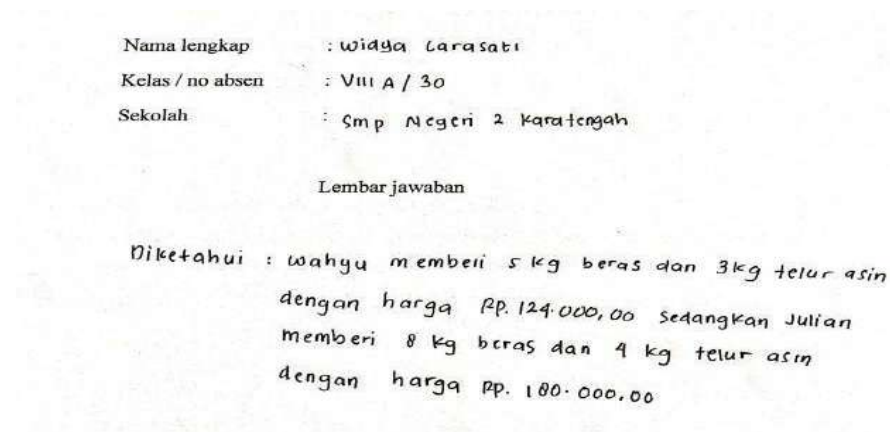 Nama lengkap : Widya Larasati
Kelas / no absen : VIII A / 30
Sekolah : Smp Negeri 2 Karatengah
Lembar jawaban
Diketahui : wahyu membeli 5 kg beras dan 3kg telur asin
dengan harga RP. 124.000,00 sedangkan Julian
memberi 8 kg beras dan 4 kg telur asin
dengan harga RP. 180.000,00